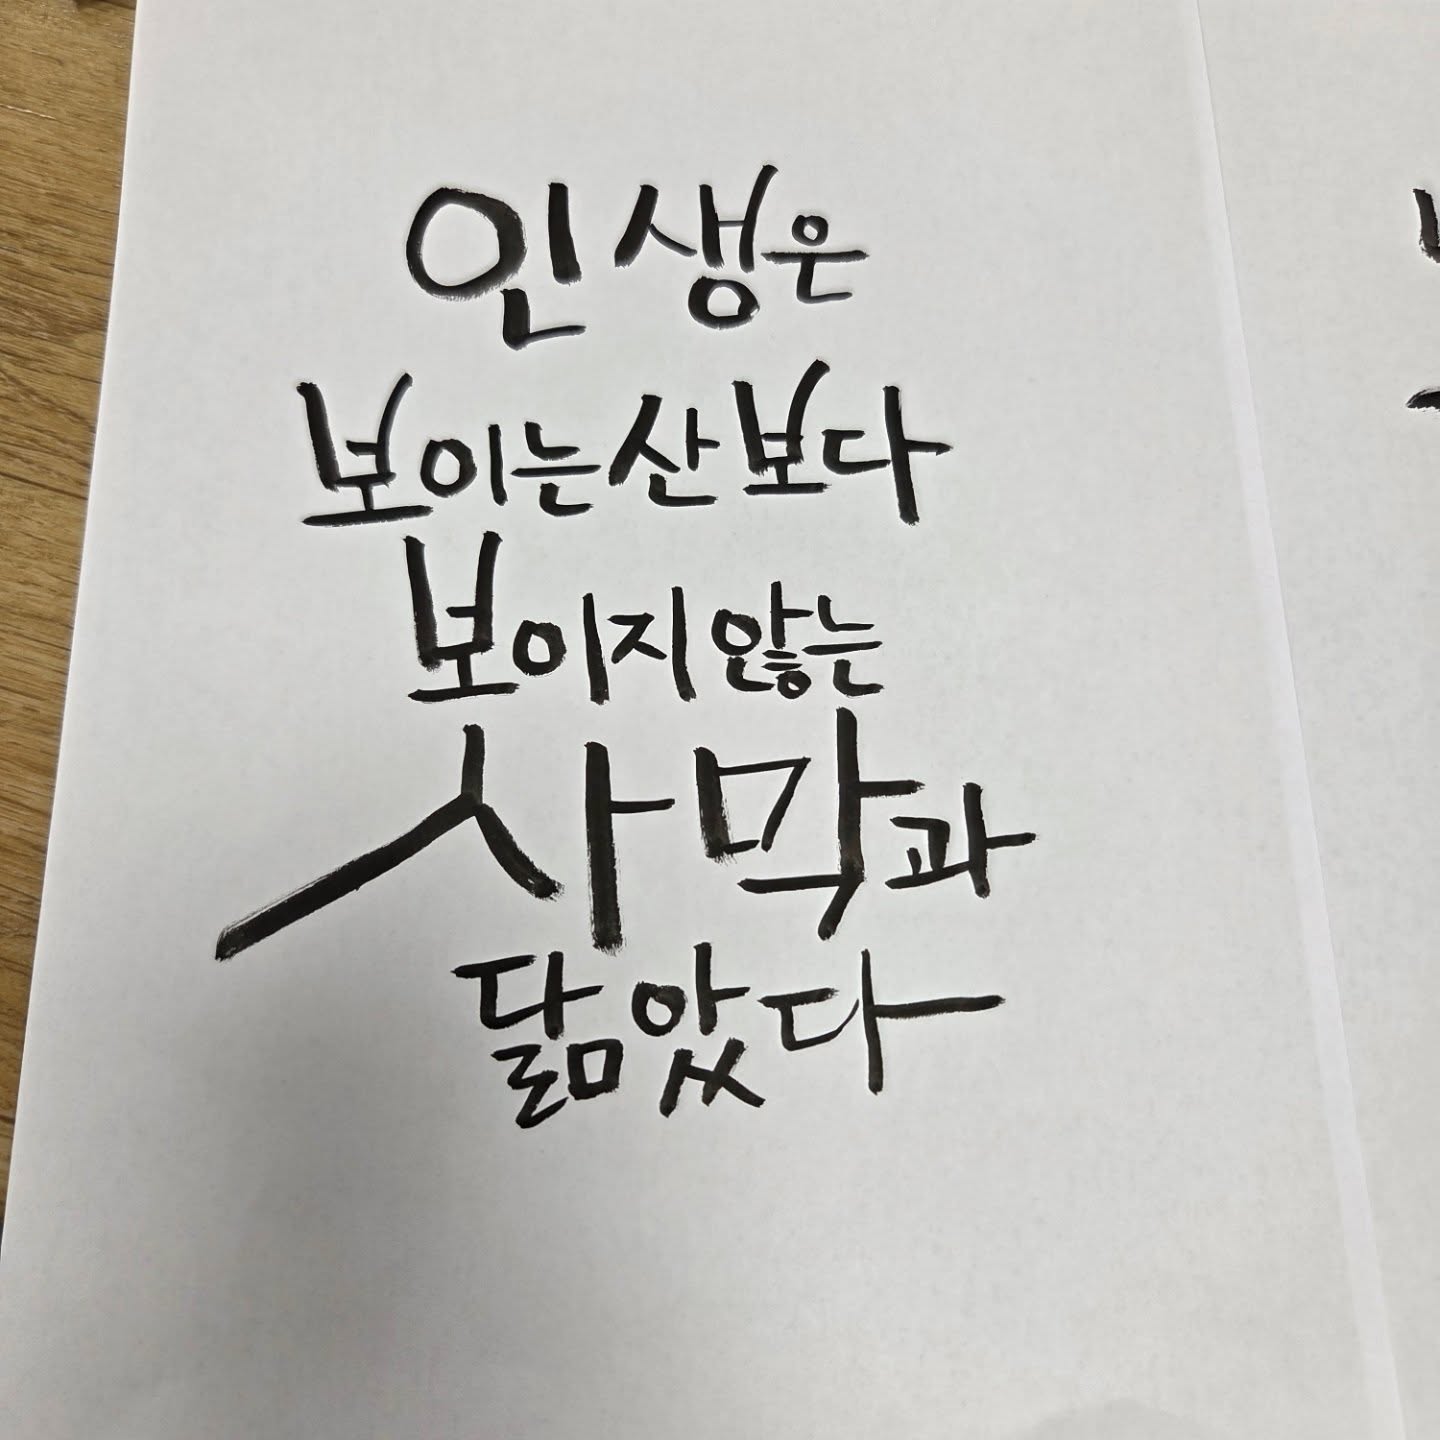 인생은
보이는 산보다
보이지 않는
사막과
닮았다